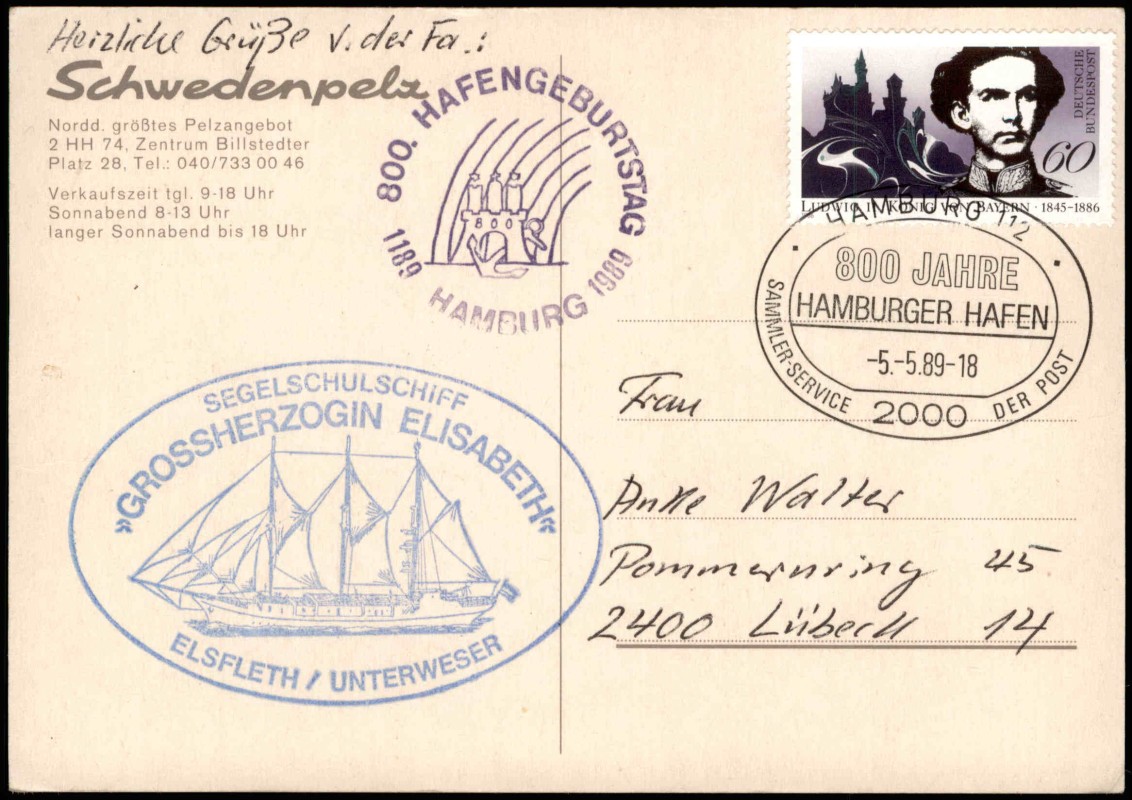 Herzliche Grüße v. der Fa.:
Schwedenpelz
Nordd. größtes Pelzangebot
2 HH 74, Zentrum Billstedter
Platz 28, Tel.: 040/733 00 46
Verkaufszeit tgl. 9-18 Uhr
Sonnabend 8-13 Uhr
langer Sonnabend bis 18 Uhr
800. HAFENGEBURTSTAG
800
1189 HAMBURG 1989
DEUTSCHE
BUNDESPOST
60
LUDWIG II. KÖNIG VON BAYERN · 1845-1886
HAMBURG 112
800 JAHRE
HAMBURGER HAFEN
-5.-5.89-18
SAMMLER-SERVICE DER POST
2000
SEGELSCHULSCHIFF
»GROSSHERZOGIN ELISABETH«
ELSFLETH / UNTERWESER
Frau
Anke Walter
Pommernring 45
2400 Lübeck 14